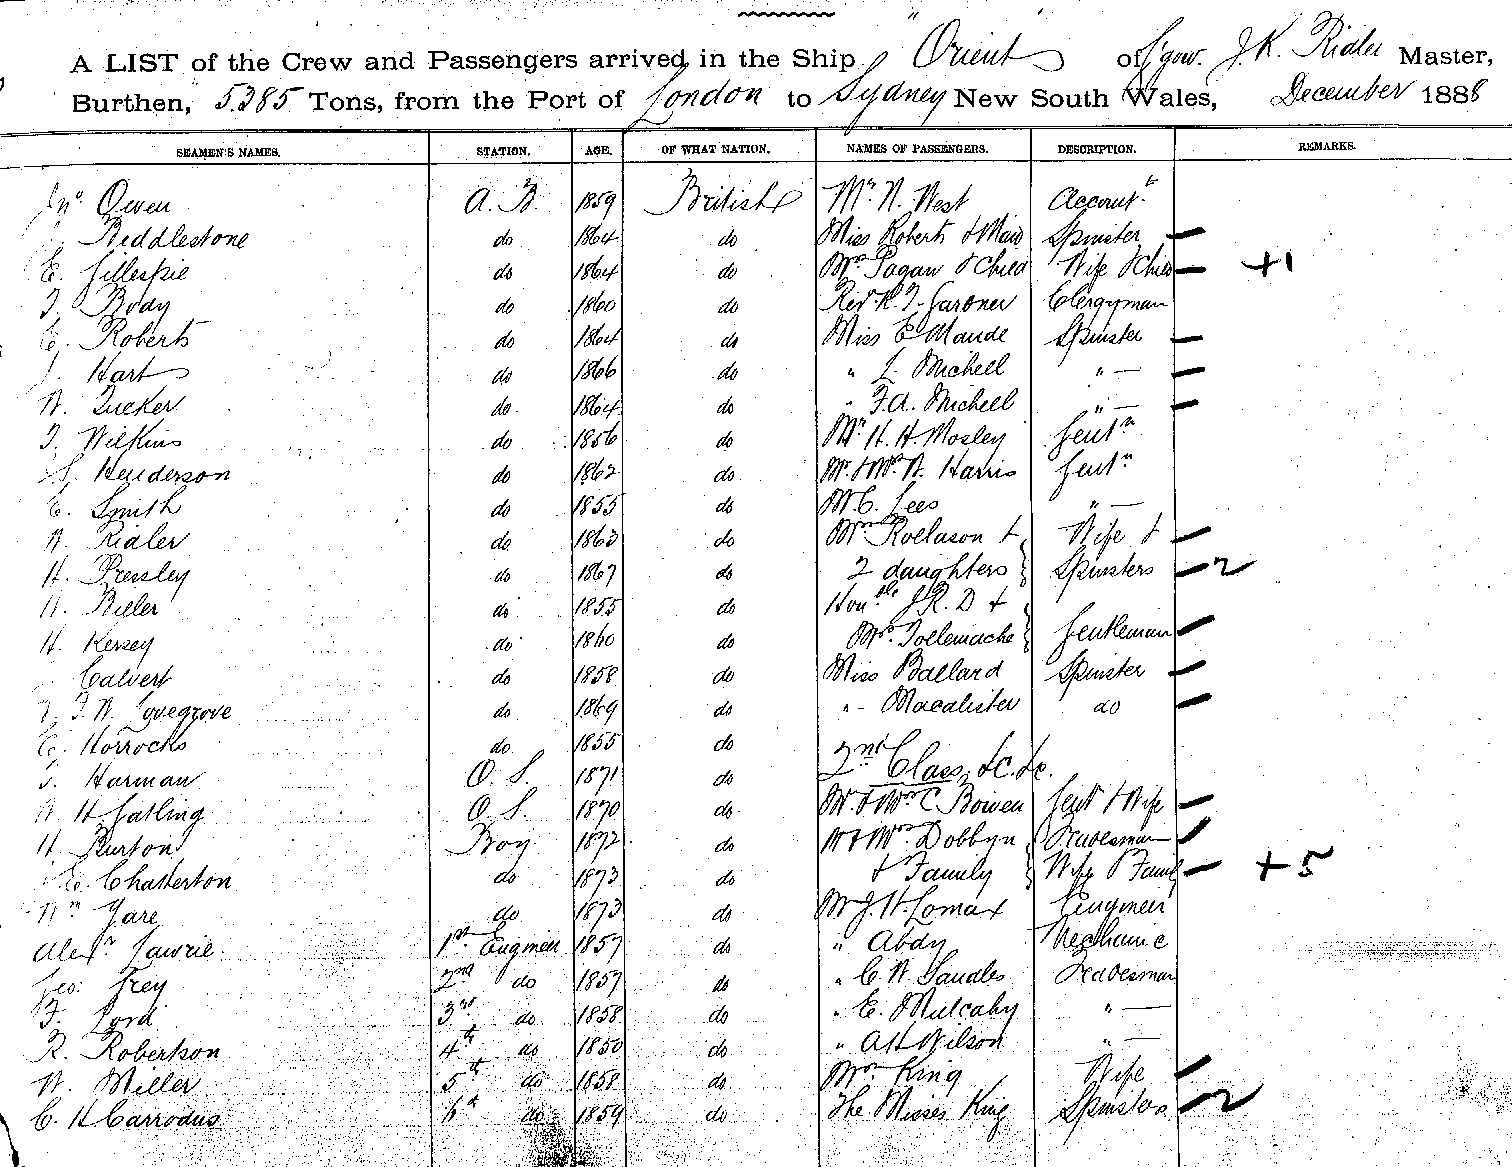 A LIST of the Crew and Passengers arrived in the Ship "Orient" of J. K. Ridler Master,
Burthen, 5385 Tons, from the Port of London to Sydney New South Wales, December 1888
SEAMEN'S NAMES. STATION. AGE. OF WHAT NATION. NAMES OF PASSENGERS. DESCRIPTION. REMARKS.
Jno. Owen A. B. 1859 British Mr. N. West Accountt
Biddlestone do 1864 do Miss Roberts & Maid Spinster —
E. Gillespie do 1864 do Mrs Pagan & Child Wife & Child — +1
T. Body do 1860 do Revd R. T. Gardner Clergyman
E. Roberts do 1864 do Miss E Maude Spinster —
J. Hart do 1866 do " L. Michell " — —
W. Tucker do 1864 do " F.A. Michell " — —
T. Wilkins do 1856 do Mr H. H. Mosley Gentn
Henderson do 1862 do Mr. & Mrs W. Harris Gentn
E. Smith do 1855 do Mr C. Lees " —
W. Ridler do 1863 do Mrs Rollason & Wife & —
H. Pressley do 1867 do 2 daughters Spinsters — 2
W. Biller do 1855 do Honble J.R.D &
H. Kersey do 1860 do Mrs. Tollemache Gentleman —
Calvert do 1858 do Miss Ballard Spinster —
T. W. Lovegrove do 1869 do " Macalister do —
C. Horrocks do 1855 do 2nd Class, &c. &c.
T. Harman O. S. 1871 do
W H Gatling O. S. 1870 do Mr & Mrs C. Bowen Gent & Wife —
H. Burton Boy 1872 do Mr & Mrs Dobbyn Tradesman —
E. Chatterton do 1873 do & Family Wife & Family — +5
Wm Yare do 1873 do Mr J. H. Lomax Engineer
Alexr Lawrie 1st Engineer 1857 do " Abdy Mechanic
Geo. Frey 2nd do 1857 do " C. W. Sandles Tradesman
F. Lord 3rd do 1858 do " E. Mulcahy " —
R. Robertson 4th do 1850 do " A H Wilson " —
W. Miller 5th do 1858 do Mrs King Wife —
C. H Carrodus 6th do 1859 do The Misses King Spinsters — 2